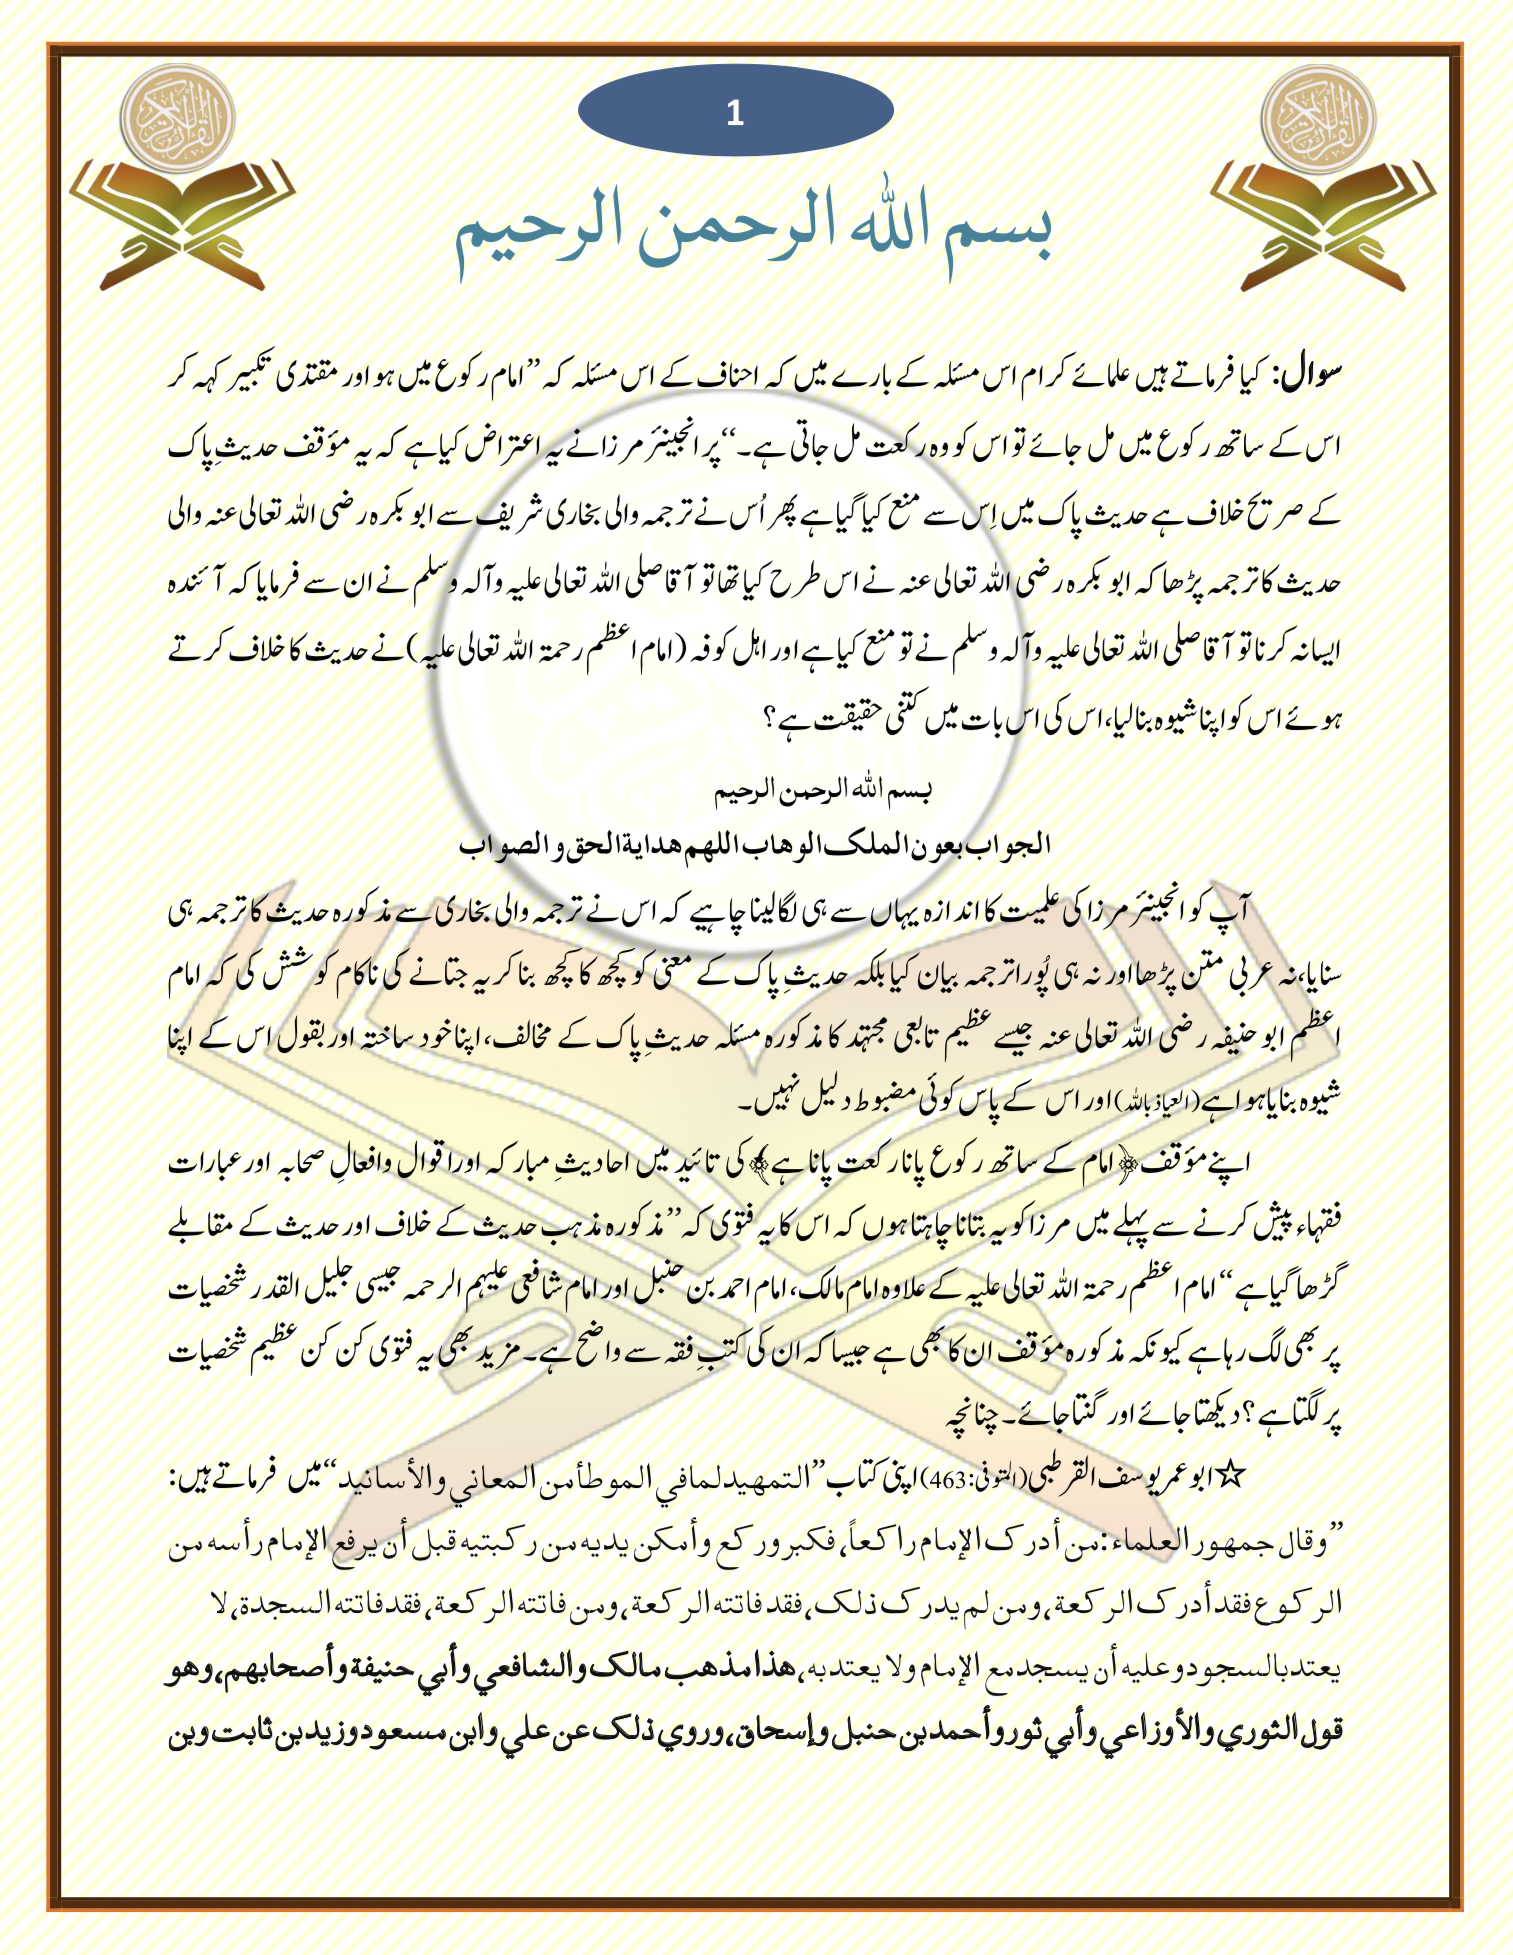 1
بسم الله الرحمن الرحيم
سوال: کیا فرماتے ہیں علمائے کرام اس مسئلہ کے بارے میں کہ احناف کے اس مسئلہ کہ ”امام رکوع میں ہو اور مقتدی تکبیر کہہ کر
اس کے ساتھ رکوع میں مل جائے تو اس کو وہ رکعت مل جاتی ہے۔“ پر انجینئر مرزا نے یہ اعتراض کیا ہے کہ یہ مؤقف حدیثِ پاک
کے صریح خلاف ہے حدیث پاک میں اِس سے منع کیا گیا ہے پھر اُس نے ترجمہ والی بخاری شریف سے ابو بکرہ رضی اللہ تعالی عنہ والی
حدیث کا ترجمہ پڑھا کہ ابو بکرہ رضی اللہ تعالی عنہ نے اس طرح کیا تھا تو آقا صلی اللہ تعالی علیہ وآلہ وسلم نے ان سے فرمایا کہ آئندہ
ایسا نہ کرنا تو آقا صلی اللہ تعالی علیہ وآلہ وسلم نے تو منع کیا ہے اور اہل کوفہ (امام اعظم رحمۃ اللہ تعالی علیہ) نے حدیث کا خلاف کرتے
ہوئے اس کو اپنا شیوہ بنا لیا، اس کی اس بات میں کتنی حقیقت ہے؟
بسم اللہ الرحمن الرحیم
الجواب بعون الملک الوھاب اللھم ھدایۃ الحق و الصواب
آپ کو انجینئر مرزا کی علمیت کا اندازہ یہاں سے ہی لگا لینا چاہیے کہ اس نے ترجمہ والی بخاری سے مذکورہ حدیث کا ترجمہ ہی
سنایا، نہ عربی متن پڑھا اور نہ ہی پُورا ترجمہ بیان کیا بلکہ حدیثِ پاک کے معنی کو کچھ کا کچھ بنا کر یہ جتانے کی ناکام کوشش کی کہ امام
اعظم ابو حنیفہ رضی اللہ تعالی عنہ جیسے عظیم تابعی مجتہد کا مذکورہ مسئلہ حدیثِ پاک کے مخالف، اپنا خود ساختہ اور بقول اس کے اپنا
شیوہ بنایا ہوا ہے (العیاذ باللہ) اور اس کے پاس کوئی مضبوط دلیل نہیں۔
اپنے مؤقف ﴿امام کے ساتھ رکوع پانا رکعت پانا ہے﴾ کی تائید میں احادیثِ مبارکہ اور اقوال وافعالِ صحابہ اور عبارات
فقہاء پیش کرنے سے پہلے میں مرزا کو یہ بتانا چاہتا ہوں کہ اس کا یہ فتوی کہ ”مذکورہ مذہب حدیث کے خلاف اور حدیث کے مقابلے
گڑھا گیا ہے“ امام اعظم رحمۃ اللہ تعالی علیہ کے علاوہ امام مالک، امام احمد بن حنبل اور امام شافعی علیہم الرحمہ جیسی جلیل القدر شخصیات
پر بھی لگ رہا ہے کیونکہ مذکورہ مؤقف ان کا بھی ہے جیسا کہ ان کی کتبِ فقہ سے واضح ہے۔ مزید بھی یہ فتوی کن کن عظیم شخصیات
پر لگتا ہے؟ دیکھتا جائے اور گنتا جائے۔ چنانچہ
☆ ابو عمر یوسف القرطبی (المتوفی: 463) اپنی کتاب ”التمهيد لما في الموطأ من المعاني والأسانيد“ میں فرماتے ہیں:
”وقال جمهور العلماء: من أدرک الإمام راکعاً، فکبر ورکع وأمکن یدیه من رکبتیه قبل أن یرفع الإمام رأسه من
الرکوع فقد أدرک الرکعة، ومن لم یدرک ذلک، فقد فاتته الرکعة، ومن فاتته الرکعة، فقد فاتته السجدة، لا
یعتد بالسجود وعلیه أن یسجد مع الإمام ولا یعتد به، هذا مذهب مالک والشافعي وأبي حنیفة وأصحابهم، وهو
قول الثوري والأوزاعي وأبي ثور وأحمد بن حنبل وإسحاق، وروي ذلک عن علي وابن مسعود وزید بن ثابت وبن